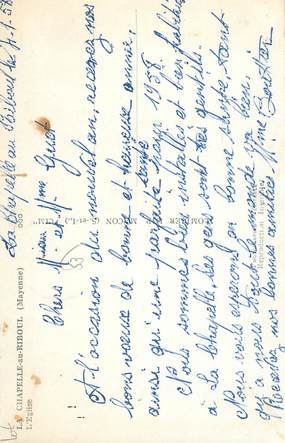 La Chapelle au Riboul le 7-1-58
LA CHAPELLE-au-RIBOUL (Mayenne)
L'Eglise
Chers Mr et Mme
A l'occasion du nouvel an, recevez nos
bons vœux de bonne et heureuse année,
ainsi qu'une parfaite santé pour 1958.
Nous sommes bien installés et bien habitués
à La Chapelle, les gens sont très gentils.
Nous vous espérons en bonne santé, quant
à nous tout le monde va bien.
Recevez nos bonnes amitiés. Mme
COMBIER MACON (S.-et-L.) "CIM"